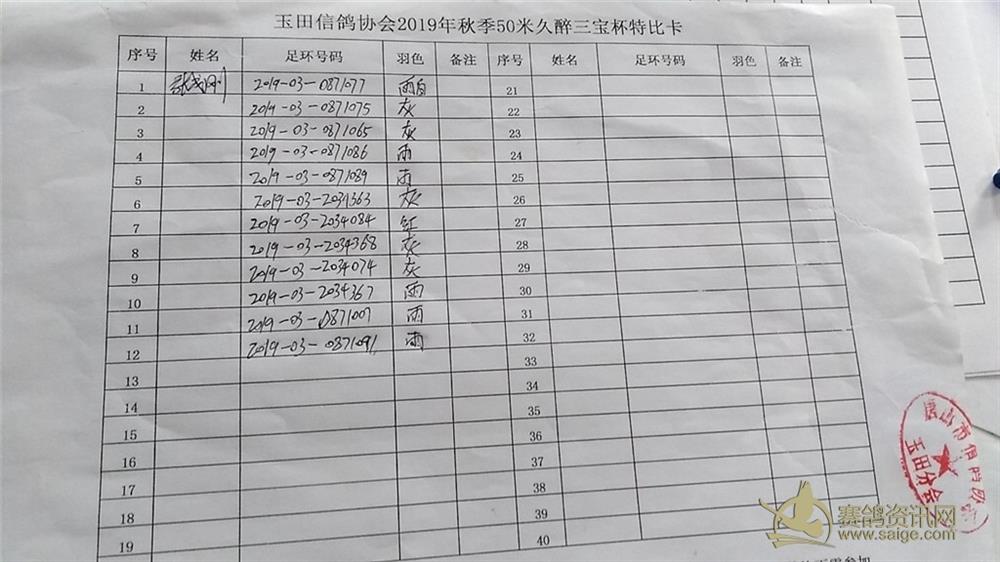 玉田信鸽协会2019年秋季50米久醉三宝杯特比卡
序号 姓名 足环号码 羽色 备注 序号 姓名 足环号码 羽色 备注
1 2019-03-0871077 雨白 21
2 2019-03-0871075 灰 22
3 2019-03-0871065 灰 23
4 2019-03-0871086 雨 24
5 2019-03-0871089 雨 25
6 2019-03-2034363 灰 26
7 2019-03-2034084 红 27
8 2019-03-2034368 灰 28
9 2019-03-2034074 灰 29
10 2019-03-2034367 雨 30
11 2019-03-0871007 雨 31
12 2019-03-0871091 雨 32
13 33
14 34
15 35
16 36
17 37
18 38
19 39
40
唐山市信鸽协会
玉田分会
赛鸽资讯网
www.saige.com